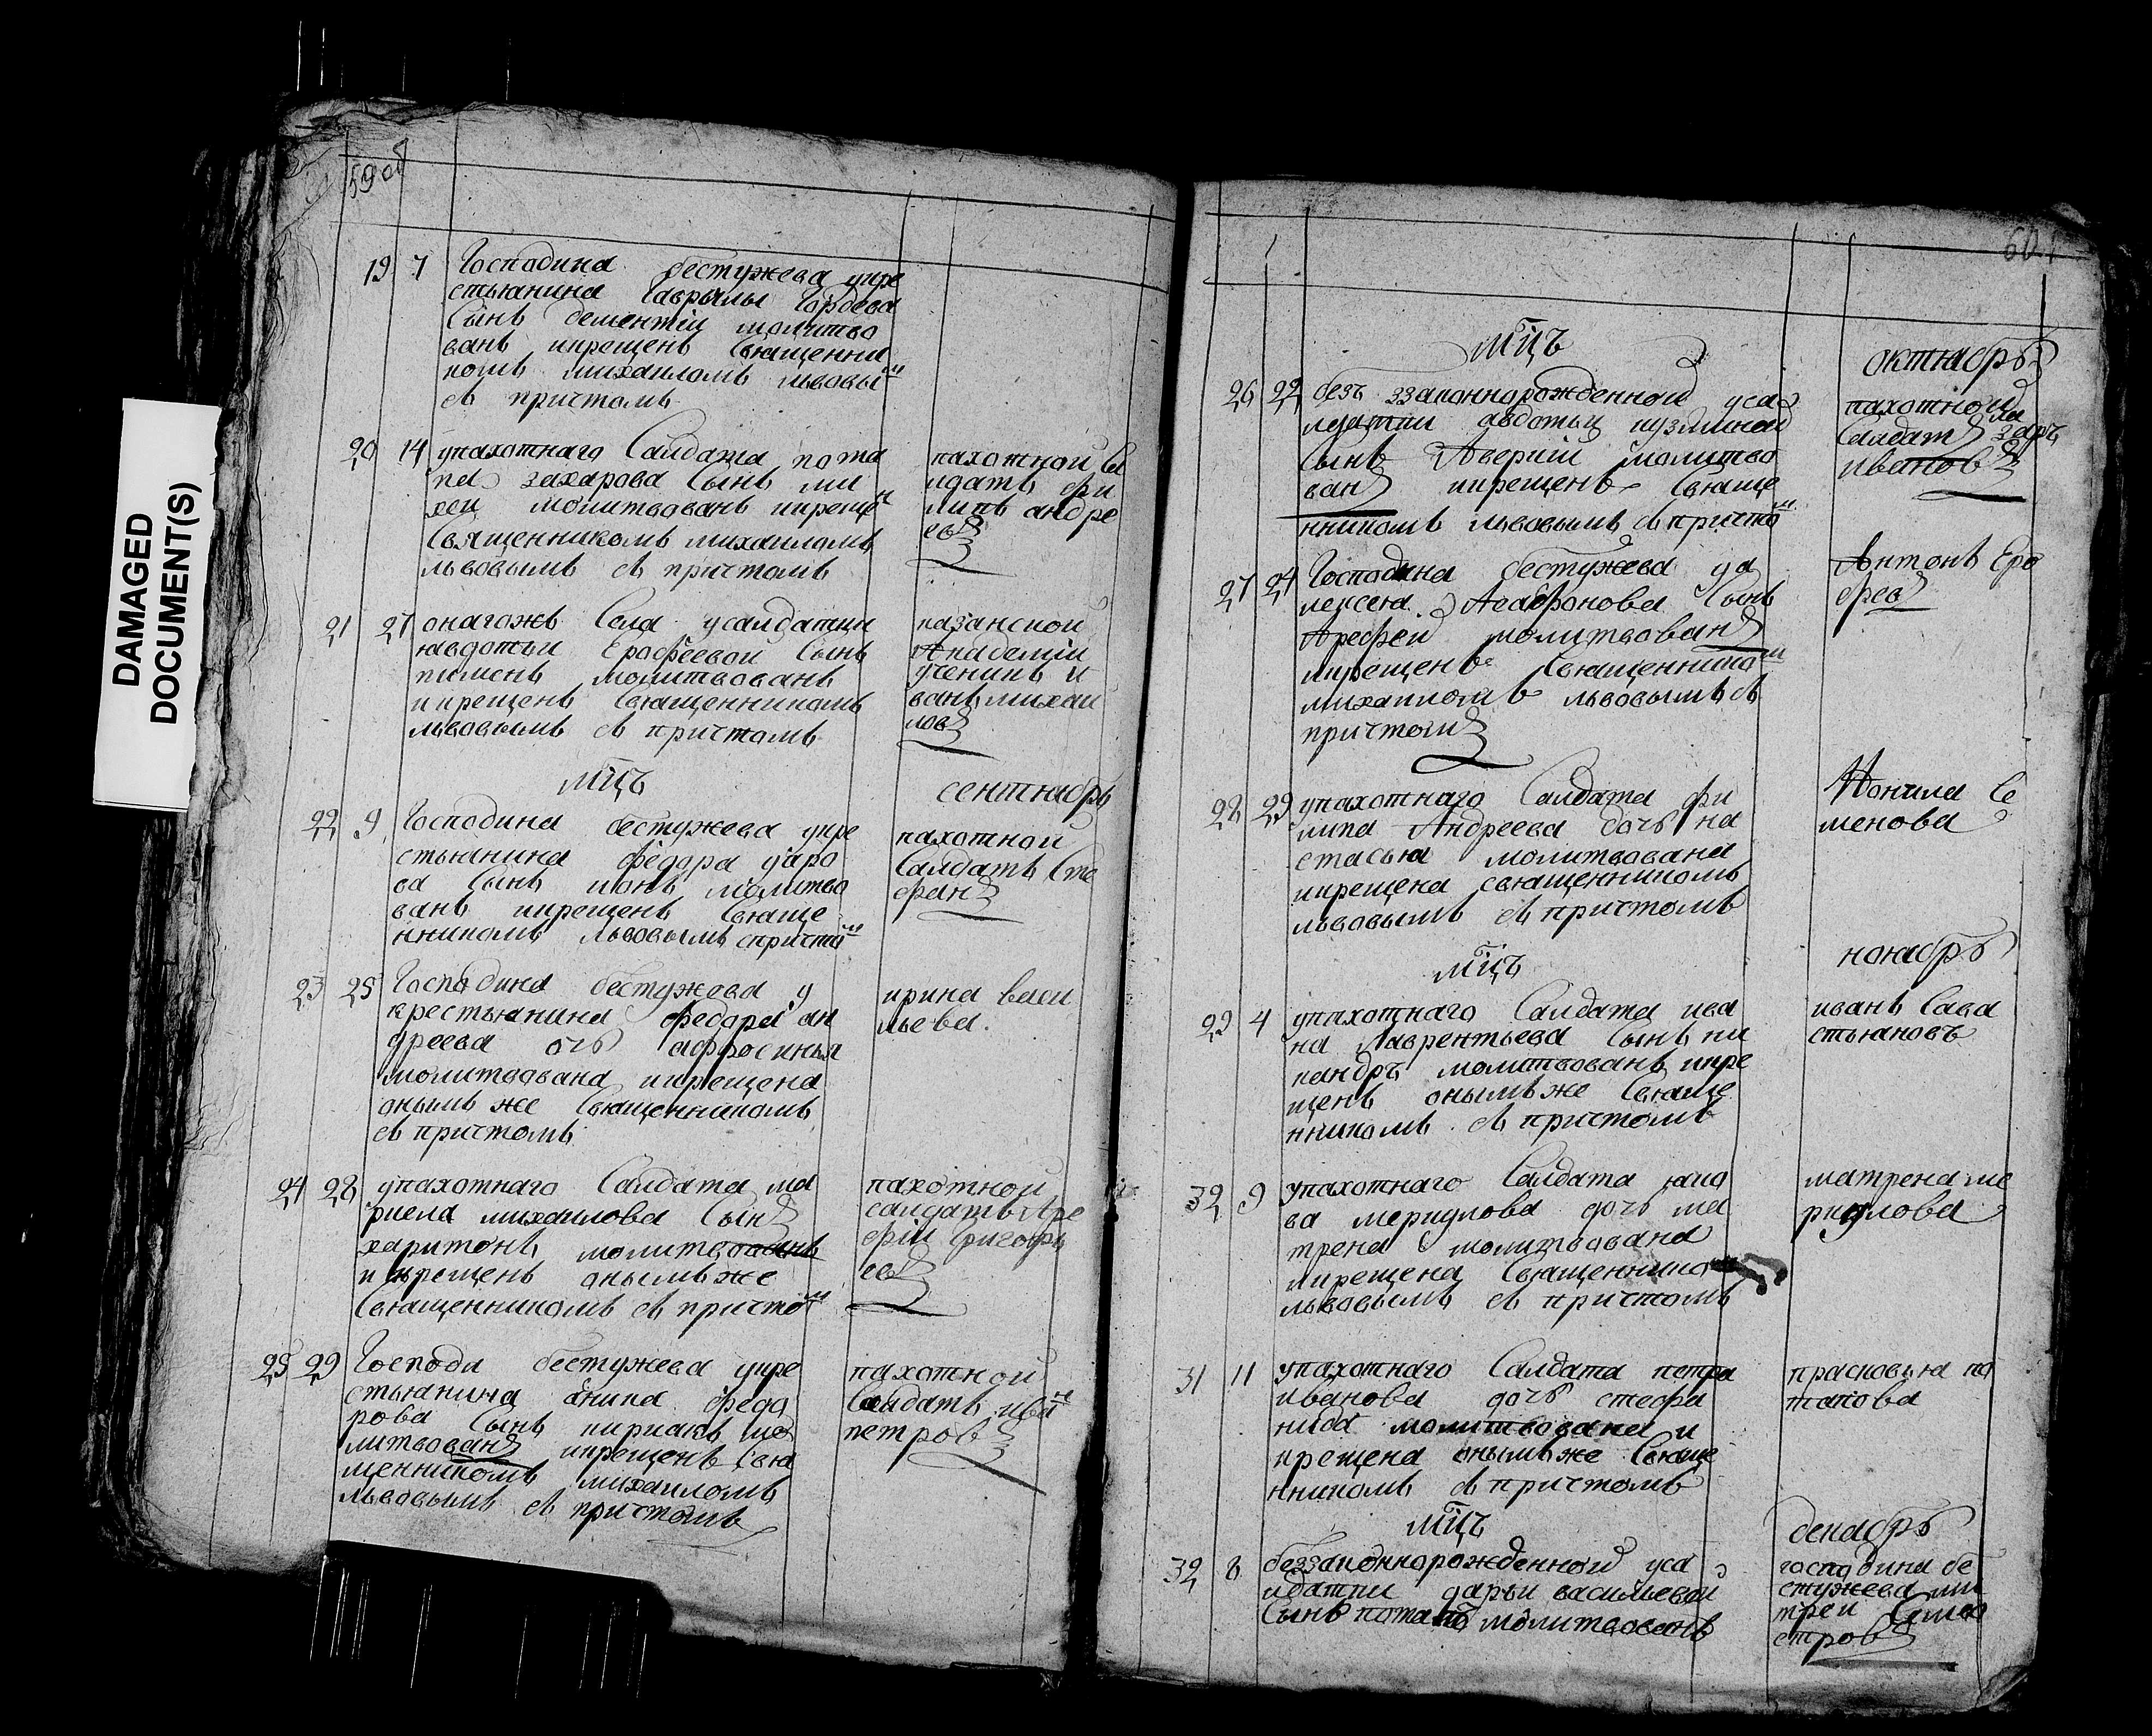 DAMAGED
DOCUMENT(S)
59 об
19 7 Господина бестужева укре
стьянина Гаврилы Гордеева
Сынъ дементiи молитво
ванъ икрещенъ Священни
комъ михаиломъ львовы м
съ причтомъ
20 14 упахотнаго Салдата пота
па захарова Сынъ ми
хеи молитвованъ икрещен
Священникомъ михаиломъ
львовымъ съ причтомъ
пахотной са
лдатъ фи
липъ андре
евъ
21 27 онагожъ Села усалдатки
Авдотьи Ерофеевой Сынъ
пименъ молитвованъ
икрещенъ Священникомъ
львовымъ съ причтомъ
казанской
Академiи
ученикъ и
ванъ михаи
ловъ
мцъ сентябрь
22 9 Господина бестужева укре
стьянина федора
ва Сынъ молитво
ванъ икрещенъ Свяще
нникомъ львовымъ спричто м
пахотной
Салдатъ Сте
фанъ
23 25 Господина бестужева у
крестьянина федора ан
дреева очь афросинья
молитвована икрещена
онымъ же Священникомъ
съ причтомъ
ирина васи
льева
24 28 упахотнаго Салдата
михаилова Сынъ
харитонъ молитвованъ
икрещенъ онымъже
Священникомъ съ причто м
пахотной
салдатъ Аре
фiи григорь
евъ
25 29 Господи бестужева укре
стьянина федо
рова Сынъ кирiакъ мо
литвованъ икрещенъ Свя
щенникомъ михаиломъ
львовымъ съ причтомъ
пахотной
Салдатъ иван
петровъ
60
мцъ октябрь
26 22 безъ ззаконнорожденной уса
лдатки авдотьи кузминой
Сынъ Аверкiй молитво
ванъ икрещенъ Свяще
нникомъ львовымъ съ причто м
пахотной
Салдатъ
ивановъ
27 24 Господина бестужева уа
лексея Агафонова Сынъ
Арефей молитвованъ
икрещенъ Священником
михаиломъ львовымъ съ
причтомъ
Антонъ Еро
феевъ
28 29 упахотнаго Салдата фи
липа Андреева дочь на
стасья молитвована
икрещена священникомъ
львовымъ съ причтомъ
Се
менова
мцъ ноябрь
29 4 упахотнаго Салдата ива
на Лаврентьева Сынъ ни
кандръ молитвованъ икре
щенъ онымъже Свяще
нникомъ съ причтомъ
иванъ Сава
стьяновъ
30 9 упахотнаго Салдата яко
ва меркулова дочь ма
трена молитвована
икрещена Священнико
львовымъ съ причтомъ
матрена ме
ркулова
31 11 упахотнаго Салдата петра
иванова дочь стефа
нида молитвована и
крещена онымъже Свяще
нникомъ съ причтомъ
прасковья по
тапова
мцъ декабрь
32 8 беззаконнорожденной уса
лдатки дарьи васильевой
Сынъ потапъ молитвованъ
господина бе
стужева ми
трей Сили
стровъ